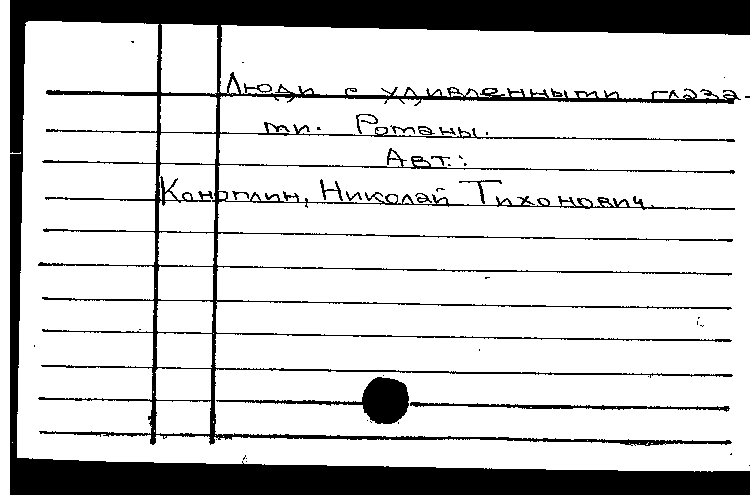 Люди с удивленными глаза-
ми. Романы.
Авт.:
Коноплин, Николай Тихонович.